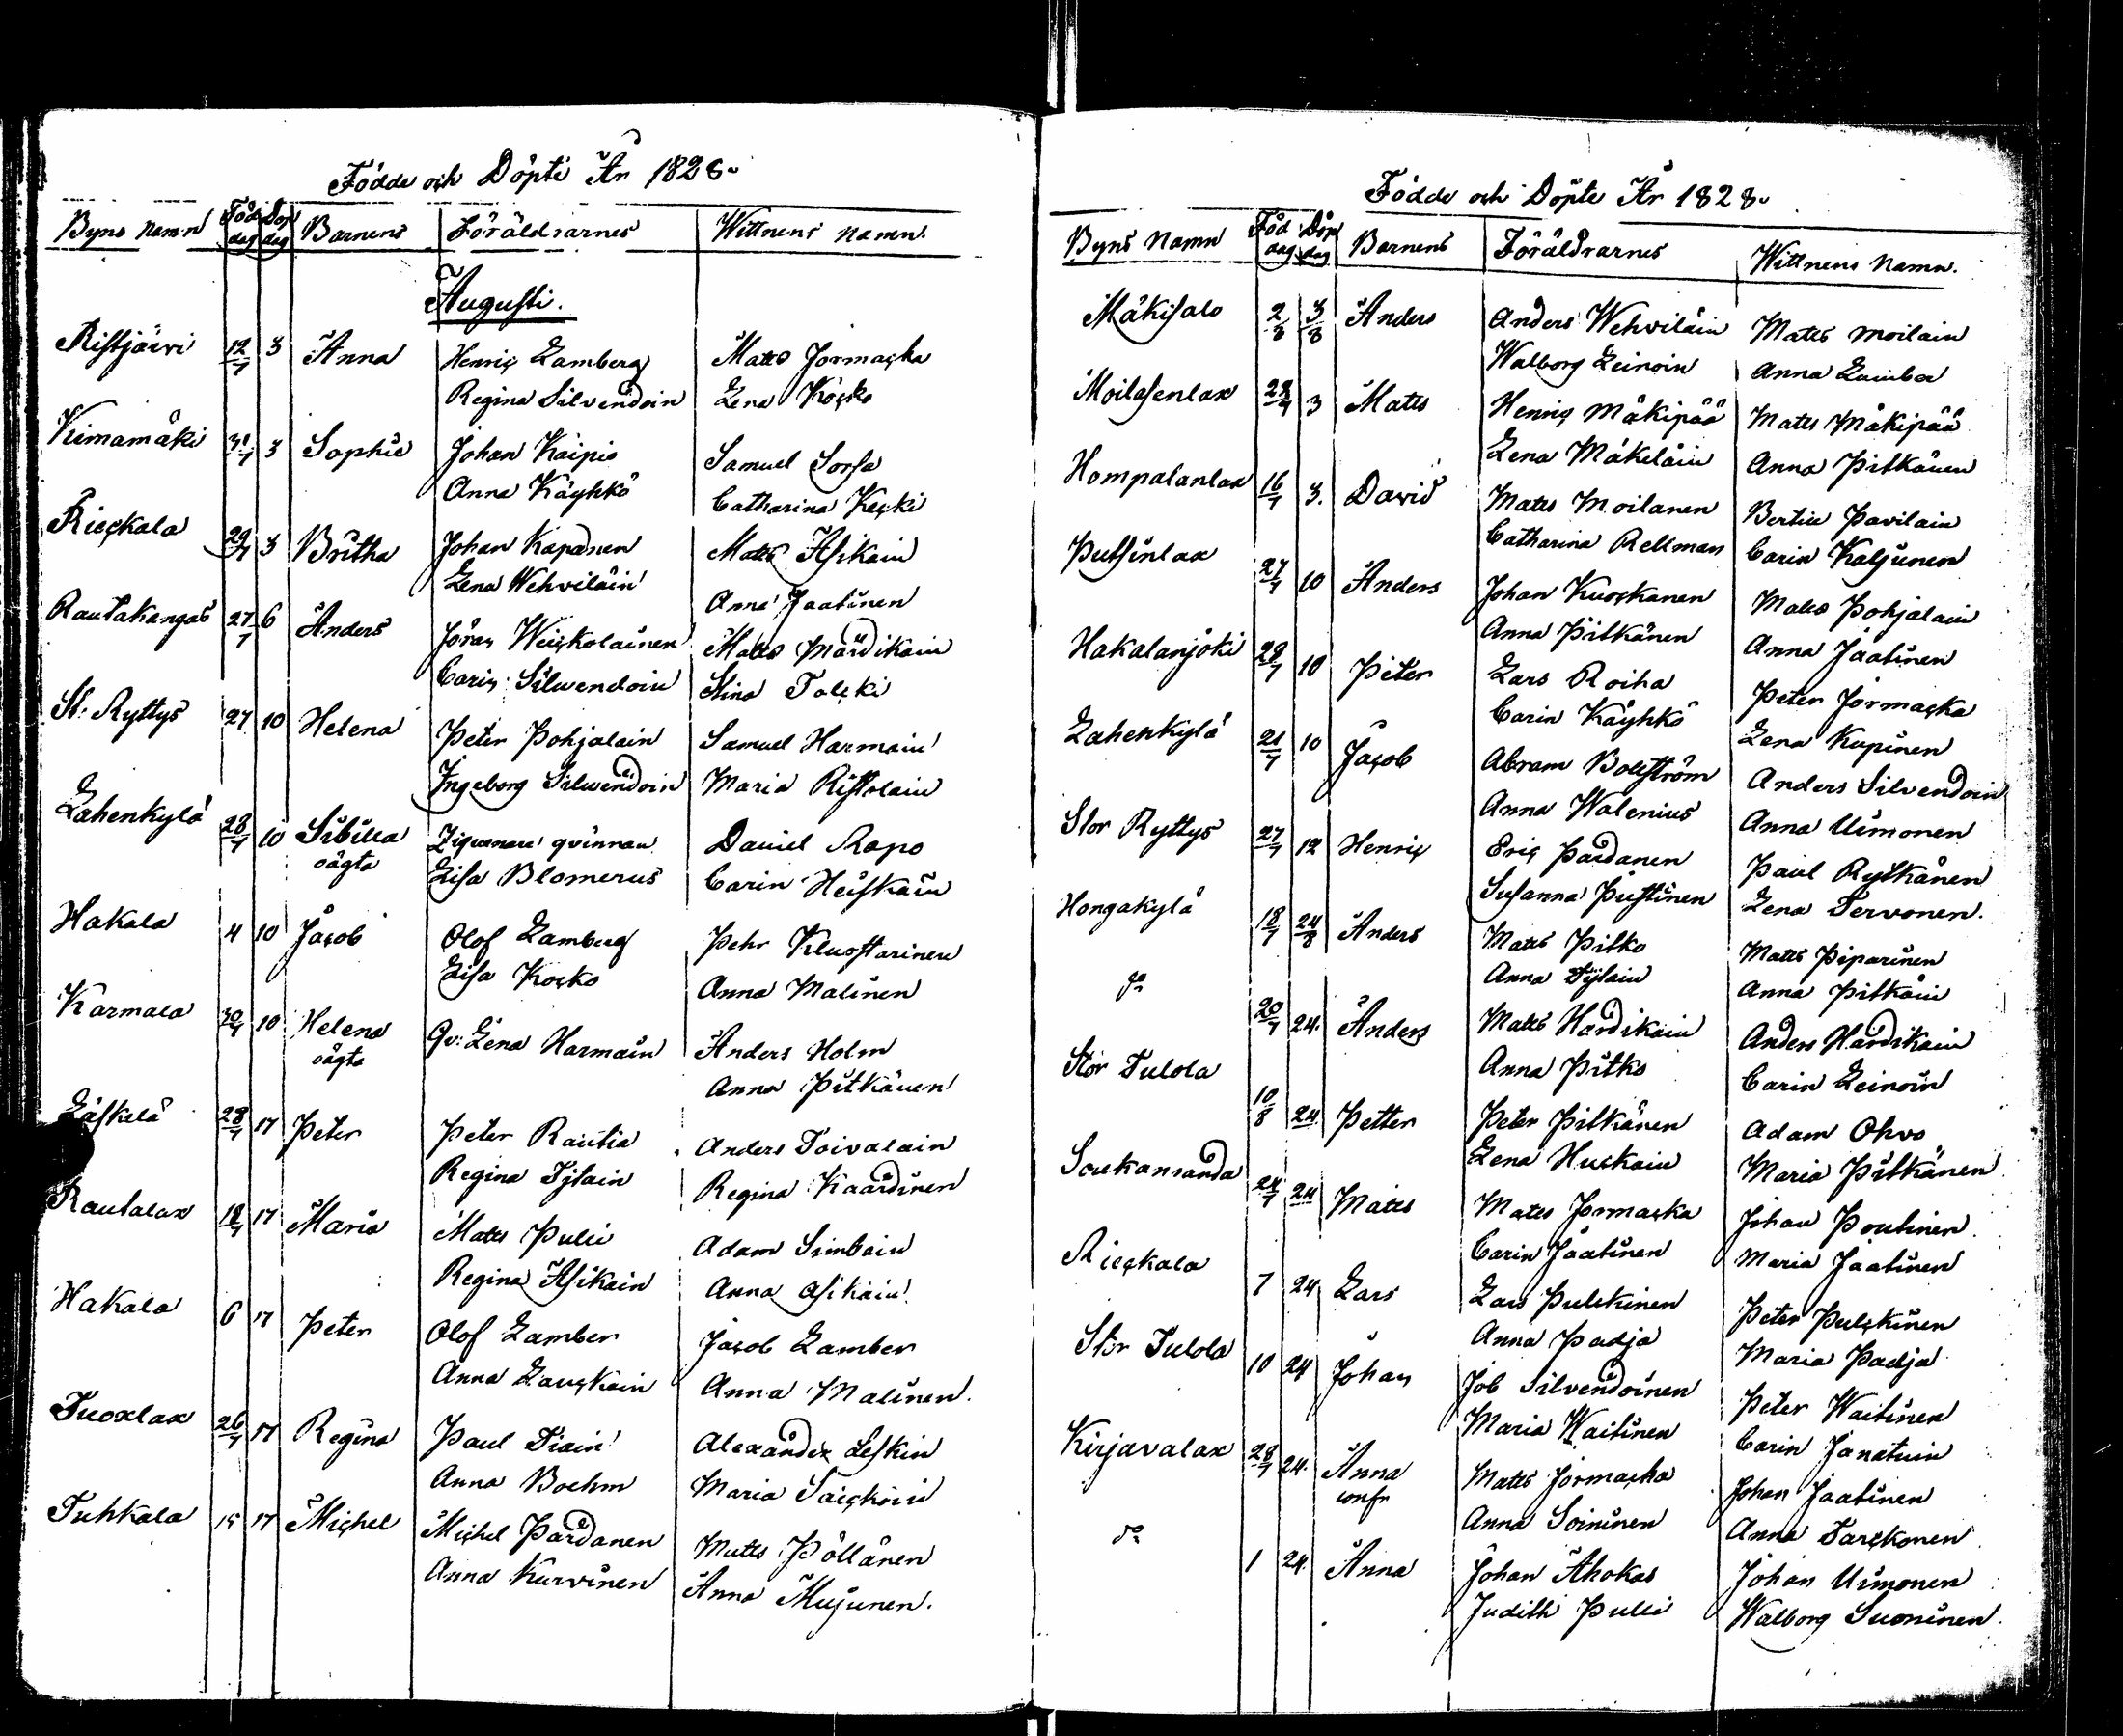 Födde och Döpte År 1828.
Byns Namn Föd dag Döp dag Barnens Föräldrarnes Wittnens namn.
Augusti.
Ristjärvi 12/7 3 Anna Henric Lamberg Matts Jormacka
Regina Silvendoin LenaKöcko
Kiimamäki 31/7 3 Sophie Johan Kaipio Samuel Sorsa
Anna Käyhkö Catharina Kecki
Rieckala 29/7 3 Britha Johan Kapanen Matts Asikain
Lena Wehviläin Anna Jaatinen
Rautakangas 27/7 6 Anders Jöran Weickolainen Matts Mardikain
Carin Silwendoin Stina Talcki
St: Ryttys 27 10 Helena Peter Pohjalain Samuel Harmain
Ingeborg Silwendoin Maria Ristolain
Lahenkylä 28/7 10 Sibilla Ziguenare qvinnan Daniel Rapo
oägta Lisa Blomerus Carin Heiskain
Hakala 4 10 Jacob Olof Lamberg Pehr Kluostarinen
Lisa Kocko Anna Malinen
Karmala 30/7 10 Helena Qv: Lena Harmain Anders Holm
oägta Anna Pitkänen
Läskelä 28/7 17 Peter Peter Rautia Anders Toivalain
Regina Ijtain Regina Kaardinen
Rautalax 18/7 17 Maria Matts Pulli Adam Simbain
Regina Asikain Anna Asikain
Hakala 6 17 Peter Olof Lamber Jacob Lamber
Anna Lauckain Anna Malinen.
Tuoxlax 26/7 17 Regina Paul Tiain Alexander Leskin
Anna Boehm Maria Saickoin
Tuhkala 15 17 Michel Michel Pardanen Matts Pöllänen
Anna Kurvinen Anna Mujunen.
Födde och Döpte År 1828.
Byns Namn Föd dag Döp dag Barnens Föräldrarnes Wittnens Namn.
Mäkisalo 2/8 3/8 Anders Anders Wehviläin Matts Moilain
Walborg Leinoin Anna Lamber
Moilasenlax 28/7 3 Matts Henric Mäkipää Matts Mäkipää
Lena Mäkeläin Anna Pitkänen
Hompalanlax 16/7 3. David Matts Moilanen Bertil Pavilain
Catharina Rellman Carin Kaljunen
Putsinlax 27/7 10 Anders Johan Kuockanen Matts Pohjalain
Anna Pitkänen Anna Jaatinen
Hakalanjoki 28/7 10 Peter Lars Roiha Peter Jormacka
Carin Käyhkö Lena Kupinen
Lahenkylä 21/7 10 Jacob Abram Bollström Anders Silvendoin
Anna Walenius Anna Uimonen
Stor Ryttys 27/7 12 Henric Eric Pardanen Paul Rytkänen
Susanna Pustinen Lena Tervonen.
Hongakylä 18/7 24/8 Anders Matts Pitko Matts Piparinen
Anna Tijlain Anna Pitkäin
do 20/7 24. Anders Matts Hardikain Anders Hardikain
Anna Pitko Carin Leinoin
Stor Tulola 10/8 24. Petter Peter Pitkänen Adam Ohvo
Lena Huckain Maria Pitkänen
Soukanranda 24/7 24 Matts Matts Jormacka Johan Poutinen
Carin Jaatinen Maria Jaatinen
Rieckala 7 24 Lars Lars Pulckinen Peter Pulckinen
Anna Padja Maria Padja
Stor Tulola 10 24 Johan Job Silvendoinen Peter Waitinen
Maria Waitinen Carin Janatuin
Kirjavalax 28/7 24. Anna Matts Jormacka Johan Jaatinen
confr Anna Soininen Anna Tarckonen
do 1 24. Anna Johan Ahokas Johan Uimonen
Judith Pulli Walborg Suoninen.